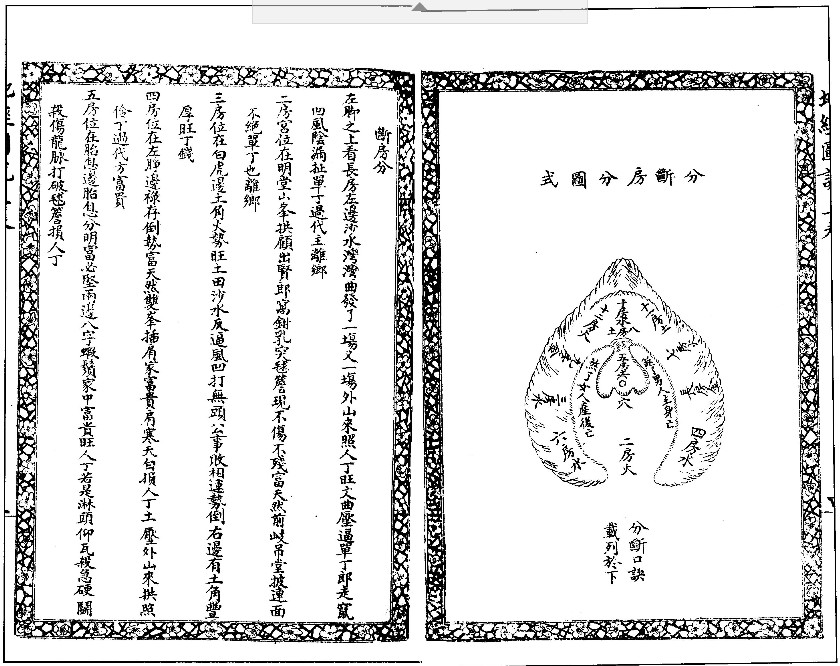 分斷房分圖式
四房水
長房
二房火
六房水
三房
五房
穴
分斷口訣
載列於下
斷房分
左脚之上看長房左邊沙水灣灣曲發了一塲又一塲外山來照人丁旺文曲壓逼單丁郎走竄
凹風陰漏扯單丁過代主離鄉
二房宮位在明堂山峯拱顧出賢郎窩鉗乳突毬簷現不傷不殘富天然前歧吊堂披連面
不絕單丁也離鄉
三房位在白虎邊土角火勢旺土田沙水反逼風凹打無頭公事敗相連勢倒右邊有土角豐
厚旺丁錢
四房位在左脚邊祿存倒勢富天然雙峯插肩家富貴肩寒天白損人丁土壓外山來拱照
儉丁過代方富貴
五房位在胎息邊胎息分明富必堅兩邊八字蝦鬚家中富貴旺人丁若是淋頭仰瓦殺急硬關
殺傷龍脉打破毬簷損人丁